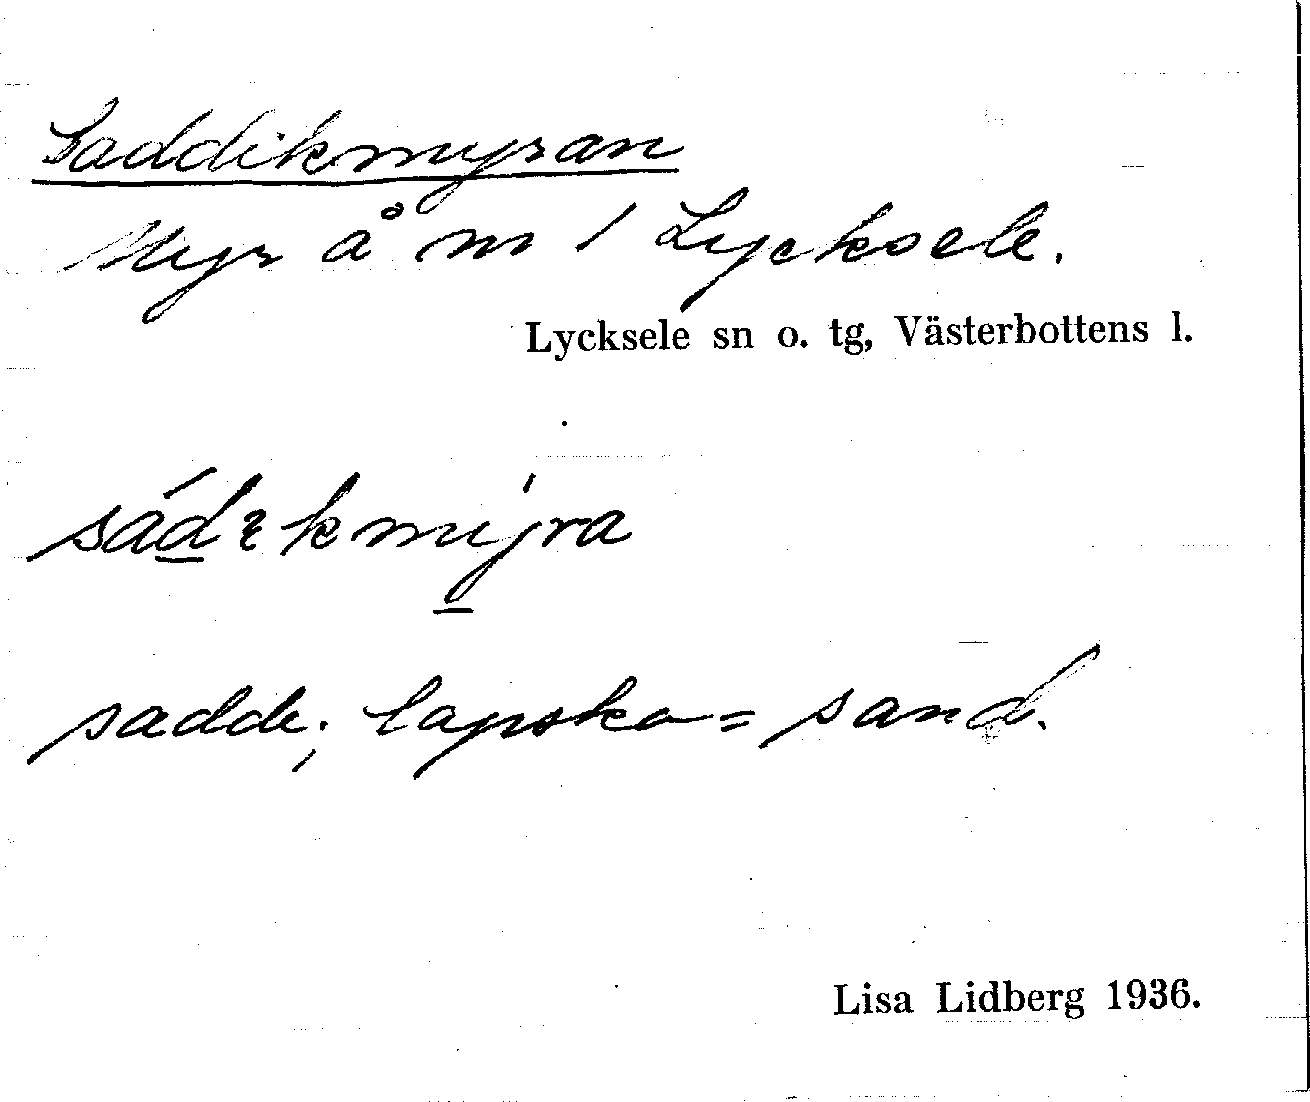 Saddikmyran
Myr å nr 1 Lycksele.
Lycksele sn o. tg, Västerbottens l.
sádɩkmýra
sadde; lapska = sand.
Lisa Lidberg 1936.